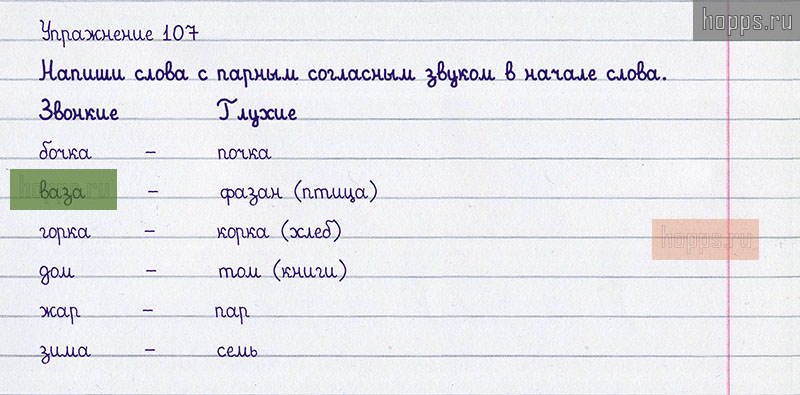 hopps.ru
Упражнение 107
Напиши слова с парным согласным звуком в начале слова.
Звонкие Глухие
бочка – почка
ваза – фазан (птица)
горка – корка (хлеб)
hopps.ru
дом – том (книги)
жар – пар
зима – семь